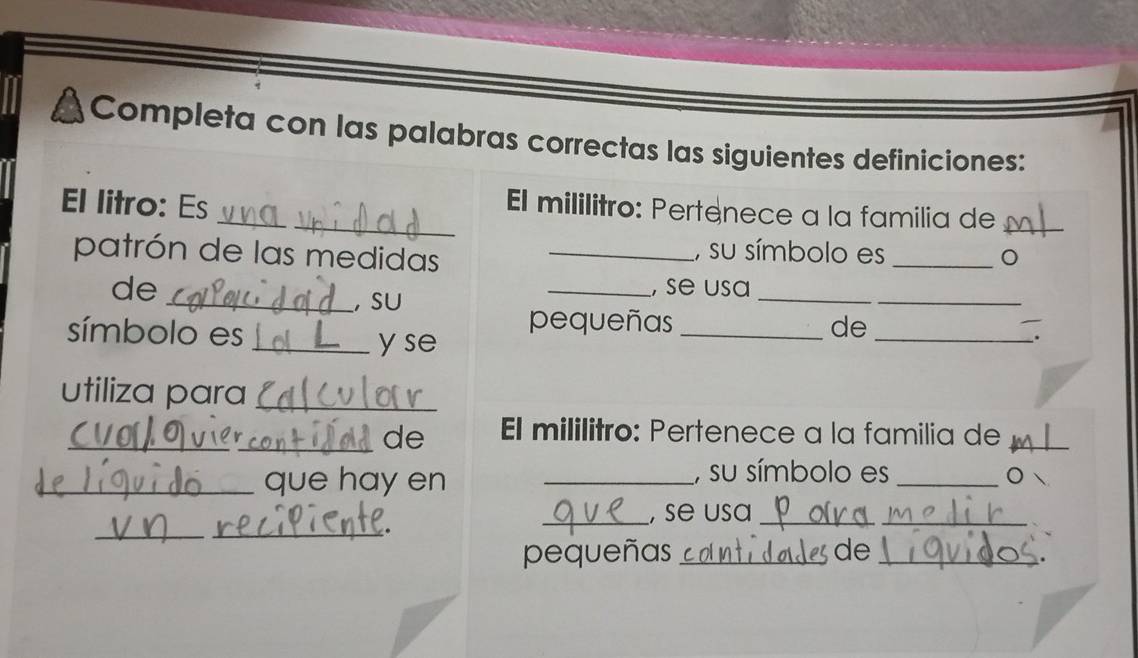 Completa con las palabras correctas las siguientes definiciones:
El litro: Es una unidad
patrón de las medidas
de capacidad, su
símbolo es la L y se
utiliza para calcular
cualquier cantidad de
de líquido que hay en
un recipiente.
El mililitro: Pertenece a la familia de ml
____, su símbolo es ____ o
____, se usa ____ ____
pequeñas ____ de ____.
El mililitro: Pertenece a la familia de ml
____, su símbolo es ____ o
que, se usa para medir
pequeñas cantidades de liquidos.